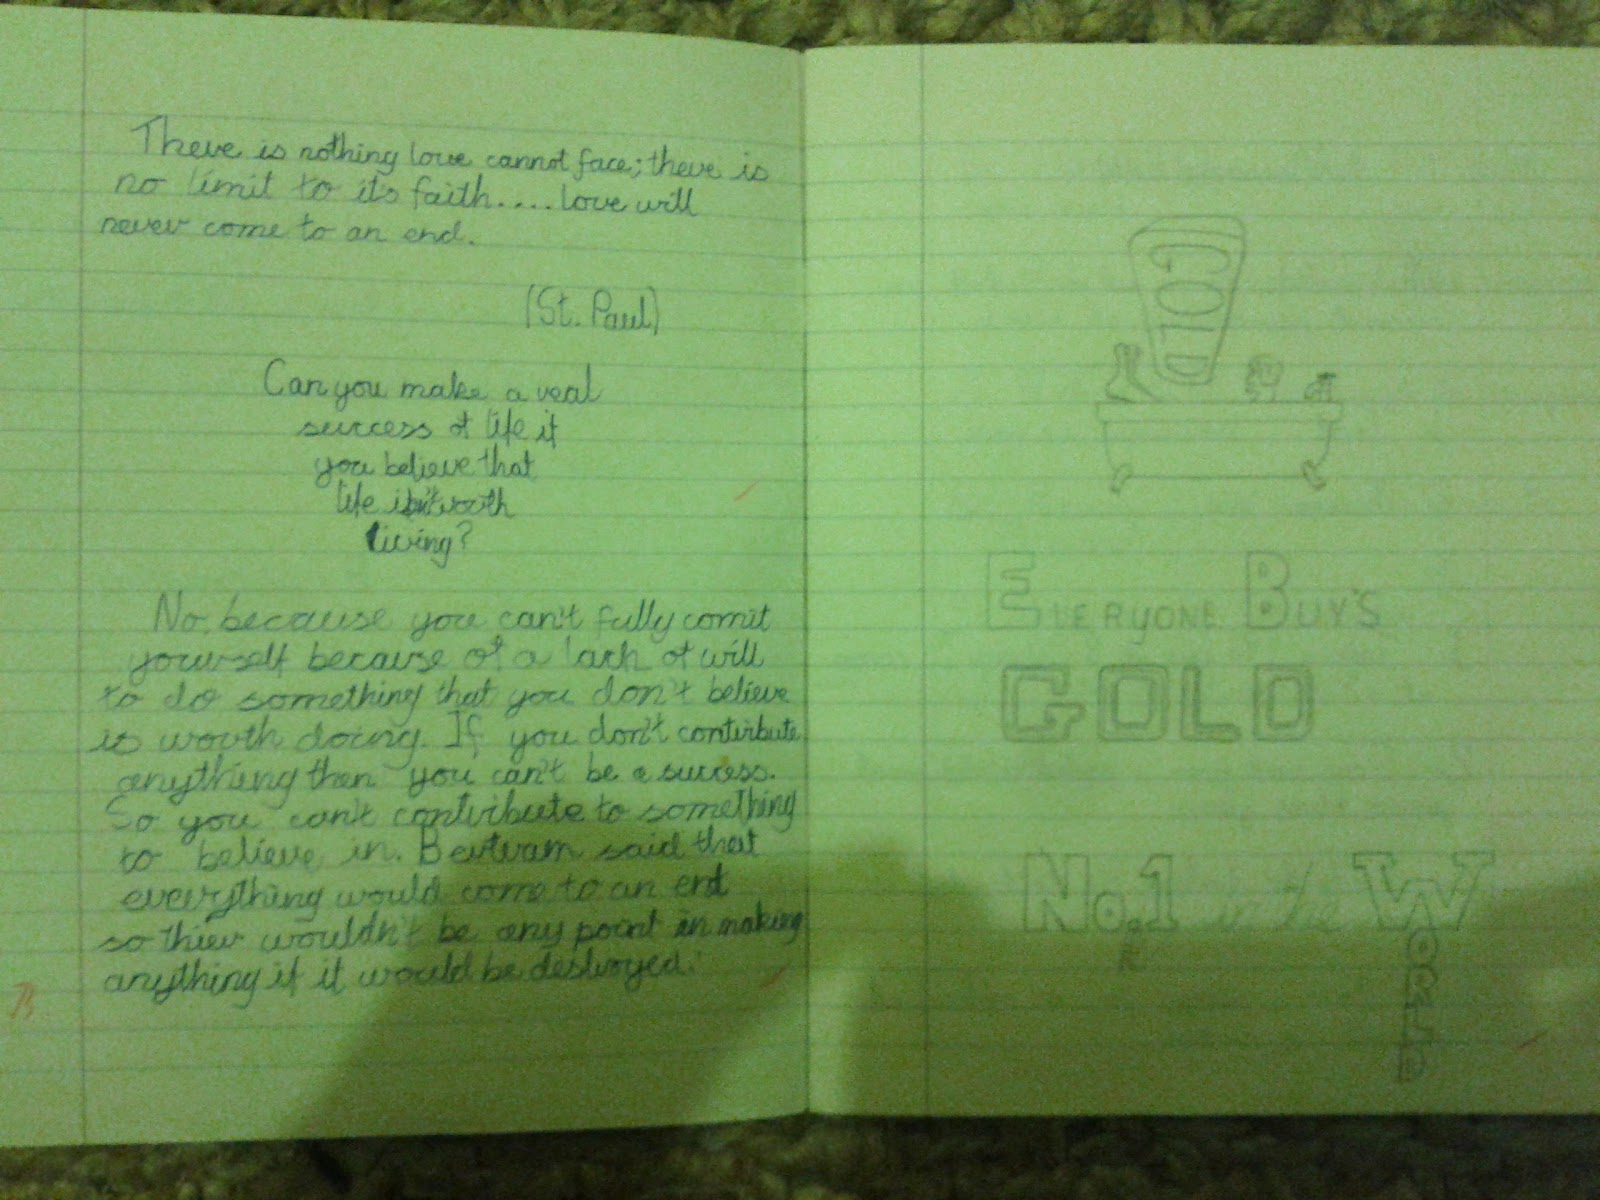 There is nothing love cannot face; there is
no limit to its faith.... love will
never come to an end.
(St. Paul)
Can you make a real
success of life if
you believe that
life isn't worth
living?
No, because you can't fully comit
yourself because of a lack of will
to do something that you don't believe
is worth doing. If you don't contiribute
anything then you can't be a success.
So you can't contiribute to something
to believe in. Bertram said that
everything would come to an end
so thier wouldn't be any point in making
anything if it would be destroyed.
B
GOLD
EVERYONE BUY'S
GOLD
No.1 in the WORLD